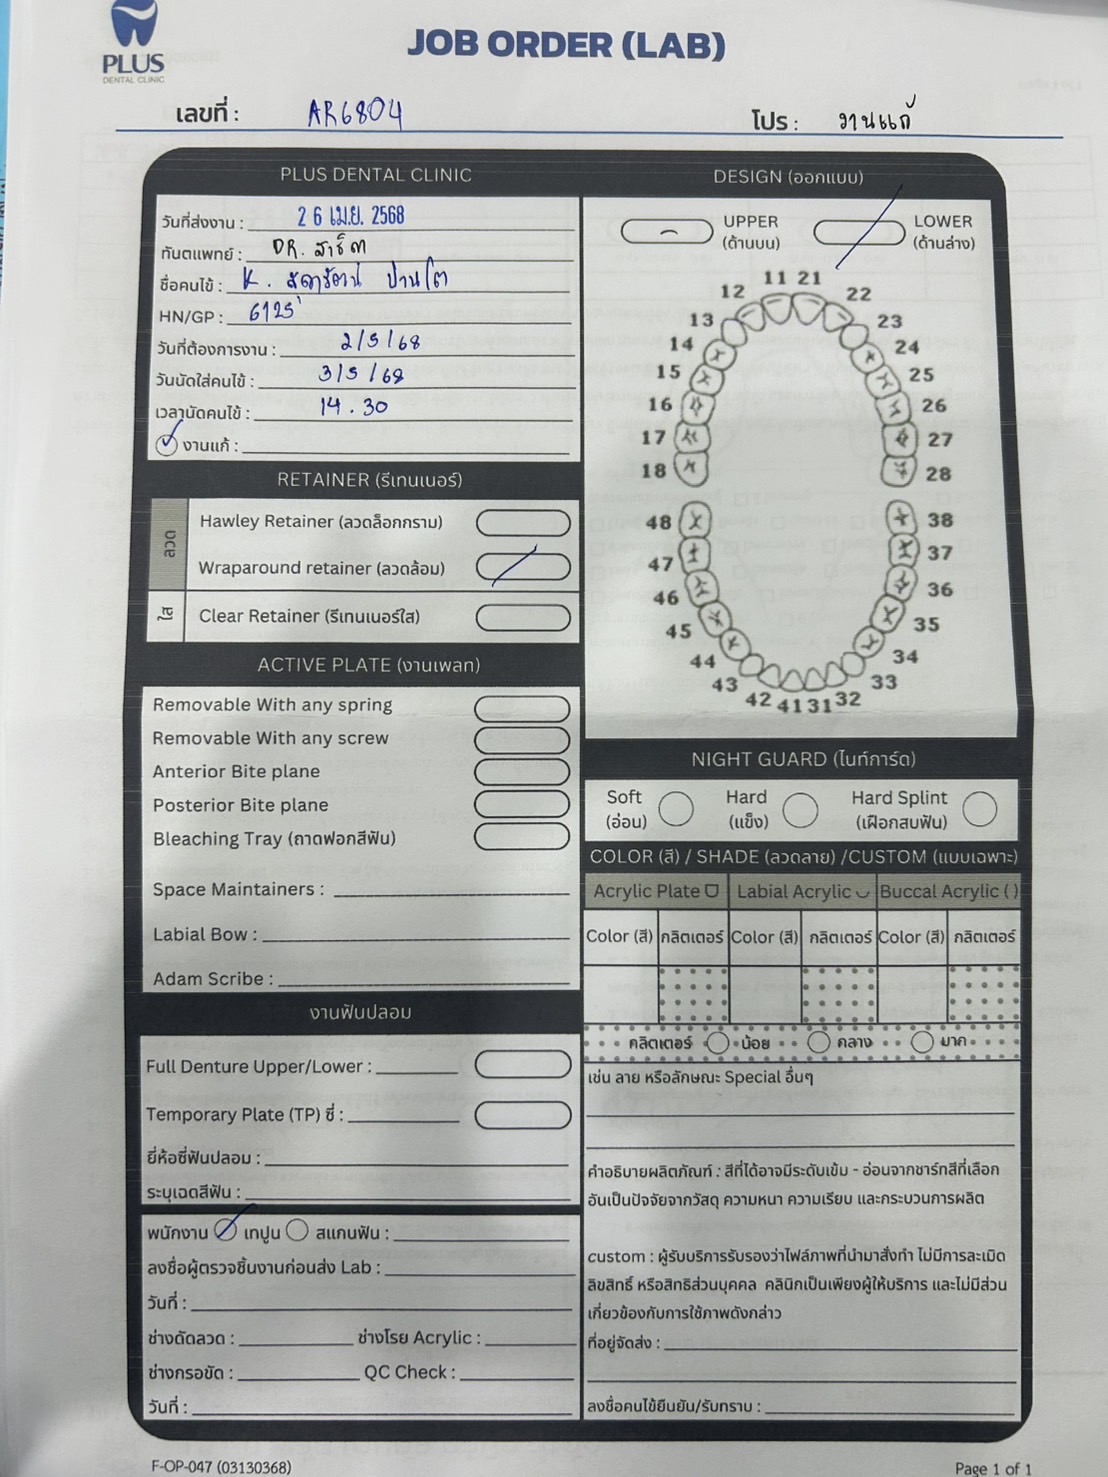 PLUS
DENTAL CLINIC
JOB ORDER (LAB)
เลขที่ : AR6804
โปร : งานแก้
PLUS DENTAL CLINIC
วันที่ส่งงาน : 26 เม.ย. 2568
ทันตแพทย์ : DR. สาธิต
ชื่อคนไข้ : K.
HN/GP : 6125
วันที่ต้องการงาน : 2/5/68
วันนัดใส่คนไข้ : 3/5/68
เวลานัดคนไข้ : 14.30
งานแก้ :
RETAINER (รีเทนเนอร์)
ลวด
Hawley Retainer (ลวดล็อกกราม)
Wraparound retainer (ลวดล้อม)
ใส
Clear Retainer (รีเทนเนอร์ใส)
ACTIVE PLATE (งานเพลท)
Removable With any spring
Removable With any screw
Anterior Bite plane
Posterior Bite plane
Bleaching Tray (ถาดฟอกสีฟัน)
Space Maintainers :
Labial Bow :
Adam Scribe :
งานฟันปลอม
Full Denture Upper/Lower :
Temporary Plate (TP) ซี่ :
ยี่ห้อซี่ฟันปลอม :
ระบุเฉดสีฟัน :
พนักงาน เทปูน สแกนฟัน :
ลงชื่อผู้ตรวจชิ้นงานก่อนส่ง Lab :
วันที่ :
ช่างดัดลวด : ช่างโรย Acrylic :
ช่างกรอขัด : QC Check :
วันที่ :
DESIGN (ออกแบบ)
UPPER (ด้านบน)
LOWER (ด้านล่าง)
11 21
12 22
13 23
14 24
15 25
16 26
17 27
18 28
48 38
47 37
46 36
45 35
44 34
43 33
42 41 31 32
NIGHT GUARD (ไนท์การ์ด)
Soft (อ่อน) Hard (แข็ง) Hard Splint (เฝือกสบฟัน)
COLOR (สี) / SHADE (ลวดลาย) /CUSTOM (แบบเฉพาะ)
Acrylic Plate Labial Acrylic Buccal Acrylic ( )
Color (สี) กลิตเตอร์ Color (สี) กลิตเตอร์ Color (สี) กลิตเตอร์
กลิตเตอร์ น้อย กลาง มาก
เช่น ลาย หรือลักษณะ Special อื่นๆ
คำอธิบายผลิตภัณฑ์ : สีที่ได้อาจมีระดับเข้ม - อ่อนจากชาร์ทสีที่เลือก
อันเป็นปัจจัยจากวัสดุ ความหนา ความเรียบ และกระบวนการผลิต
custom : ผู้รับบริการรับรองว่าไฟล์ภาพที่นำมาสั่งทำ ไม่มีการละเมิด
ลิขสิทธิ์ หรือสิทธิส่วนบุคคล คลินิกเป็นเพียงผู้ให้บริการ และไม่มีส่วน
เกี่ยวข้องกับการใช้ภาพดังกล่าว
ที่อยู่จัดส่ง :
ลงชื่อคนไข้ยืนยัน/รับทราบ :
F-OP-047 (03130368)
Page 1 of 1